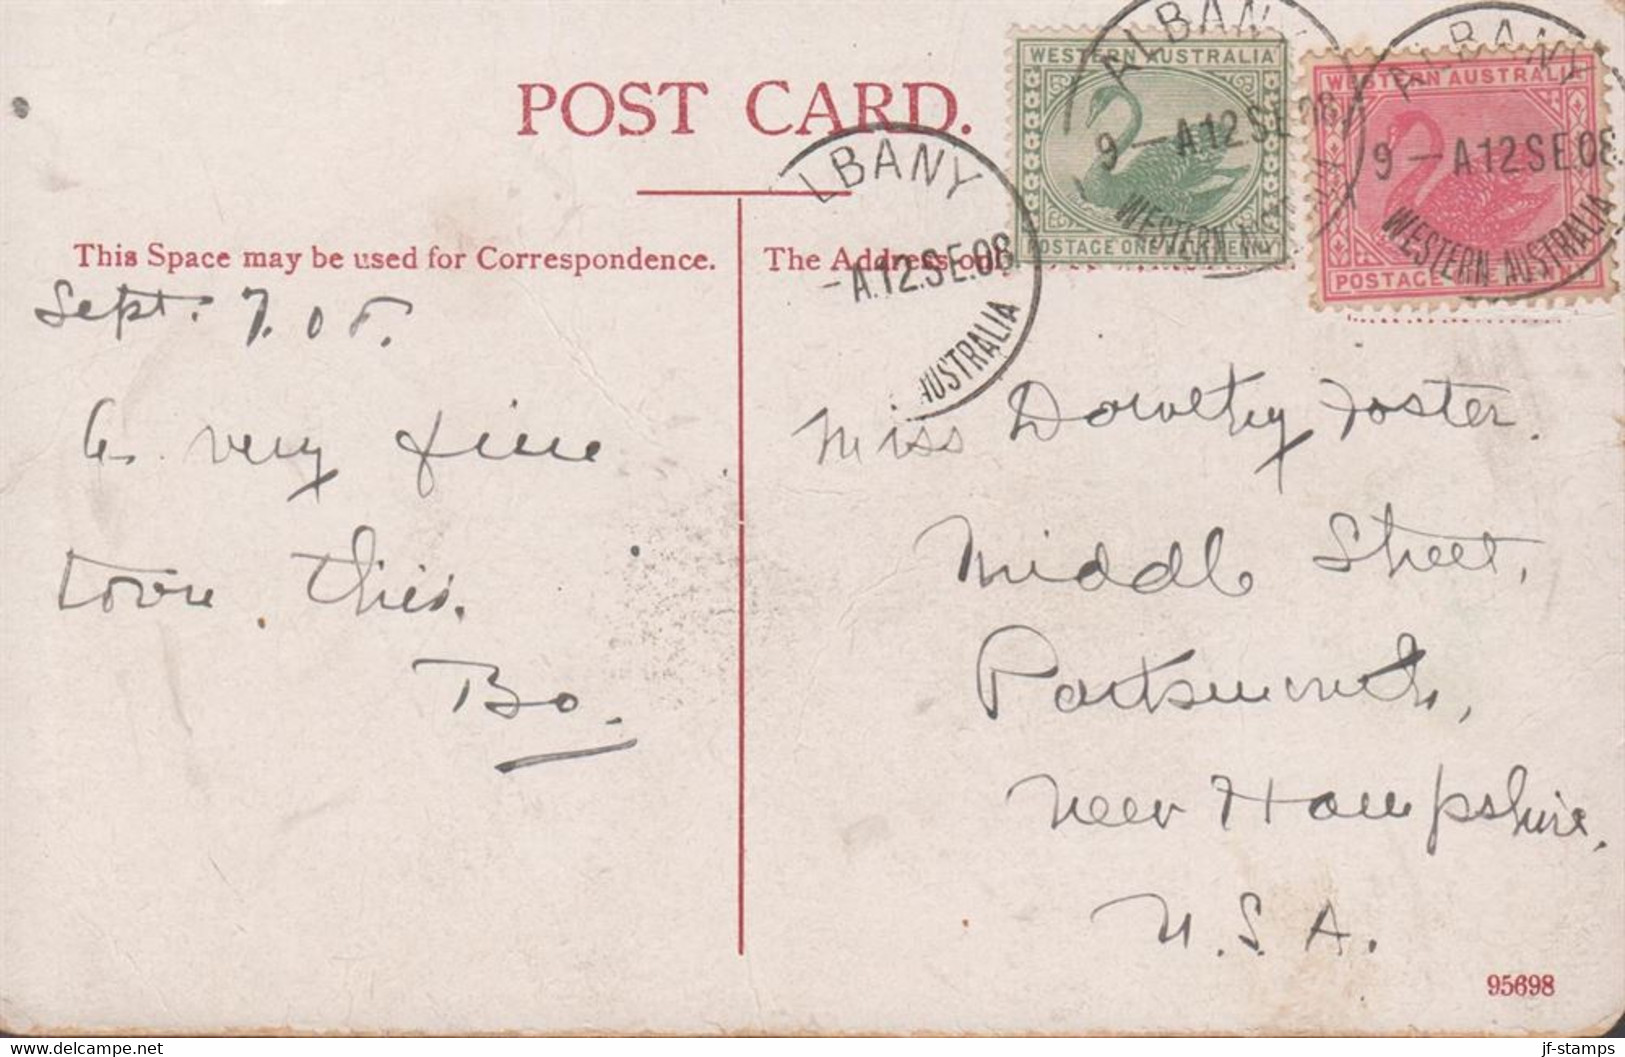 POST CARD.
WESTERN AUSTRALIA
POSTAGE ONE HALF PENNY
WESTERN AUSTRALIA
POSTAGE ONE PENNY
ALBANY
9 - A.12SE.08
WESTERN AUSTRALIA
ALBANY
9 - A12SE.08
WESTERN AUSTRALIA
LBANY
- A.12.SE.08
AUSTRALIA
This Space may be used for Correspondence.
The Address only
Sept. 7. 08.
A very fine
town this.
Bo.
Miss Dorothy Foster.
Middle Street,
Portsmouth,
New Hampshire.
U.S.A.
95698
www.delcampe.net
jf-stamps